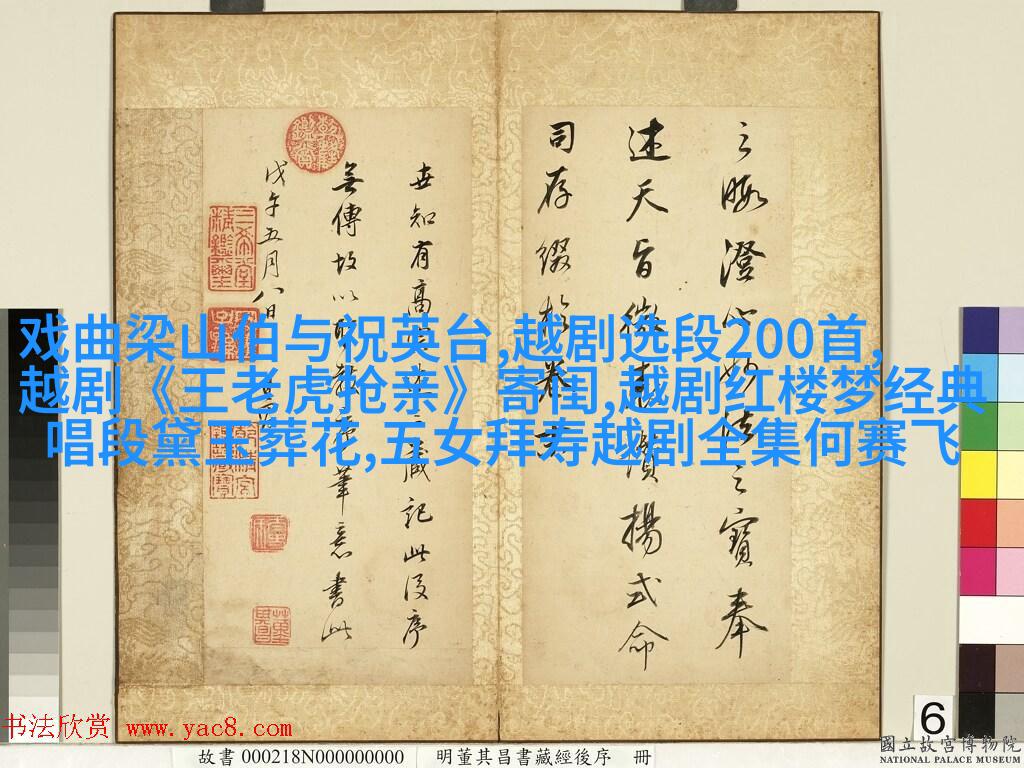 之晦澄心妙法之寶奉
述天旨微言賛揚式命
司存綴於卷末
世知有高
藏記此後序
無傳故以
筆意書此
戊午五月八日
戏曲梁山伯与祝英台,越剧选段200首,
越剧《王老虎抢亲》寄闺,越剧红楼梦经典
唱段黛玉葬花,五女拜寿越剧全集何赛飞
书法欣赏 www.yac8.com
故書 000218N000000000
明董其昌書藏經後序 冊
6
國立故宮博物院
NATIONAL PALACE MUSEUM